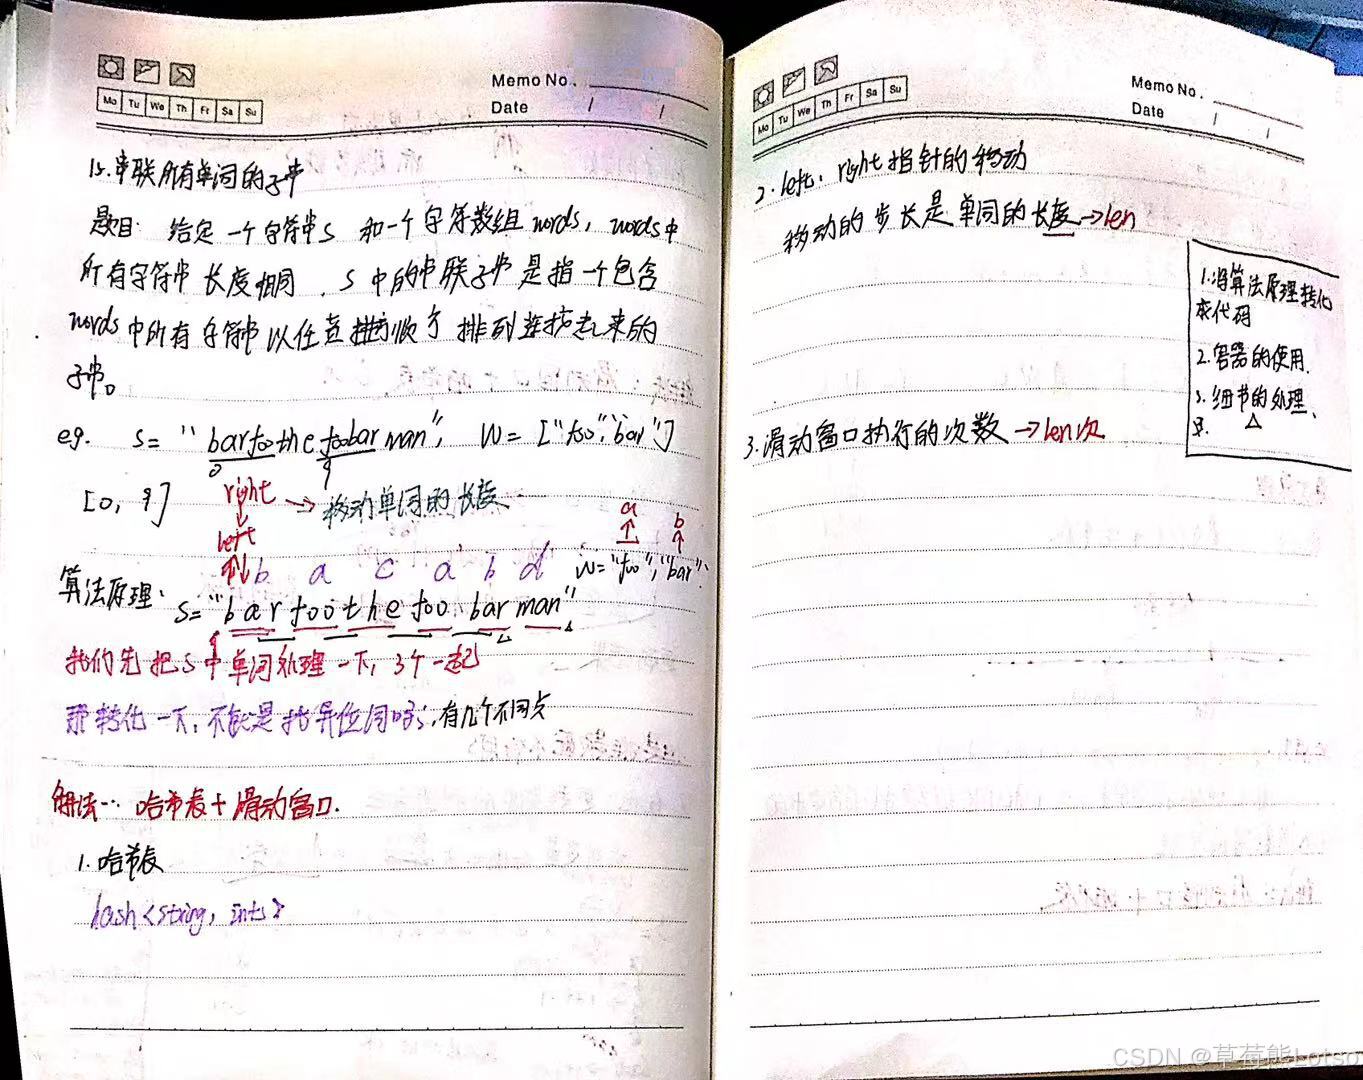 Memo No.
Date / /
Mo Tu We Th Fr Sa Su
15.串联所有单词的子串
题目: 给定一个字符串s 和一个字符数组words, words中
所有字符串长度相同. s中的串联子串是指一个包含
words中所有字符串以任意顺序排列连接起来的
子串。
eg. s= "barfoothefoobarman", W= ["foo","bar"]
0 9
[0, 9] right → 移动单词的长度
left a b
b a c a b d W="foo","bar"
算法原理:
s="bar foo the foo bar man"
我们先把s中单词处理一下, 3个一起
那转化一下, 不就是找异位词吗, 有几个不同点
解法: 哈希表+滑动窗口.
1.哈希表
hash<string, int>
Memo No.
Date / /
Mo Tu We Th Fr Sa Su
2.left, right指针的移动
移动的步长是单词的长度→len
1.将算法原理转化
成代码
2.容器的使用.
3.细节的处理、
3.滑动窗口执行的次数→len次
CSDN @草莓熊Lotso